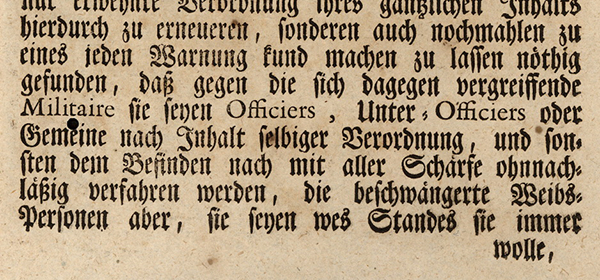 nur erwehnte Verordnung ihres gäntzlichen Inhalts
hierdurch zu erneueren, sonderen auch nochmahlen zu
eines jeden Warnung kund machen zu lassen nöthig
gefunden, daß gegen die sich dagegen vergreiffende
Militaire sie seyen Officiers, Unter-Officiers oder
Gemeine nach Inhalt selbiger Verordnung, und son-
sten dem Befinden nach mit aller Schärfe ohnnach-
läßig verfahren werden, die beschwängerte Weibs-
Personen aber, sie seyen wes Standes sie immer
wolle,